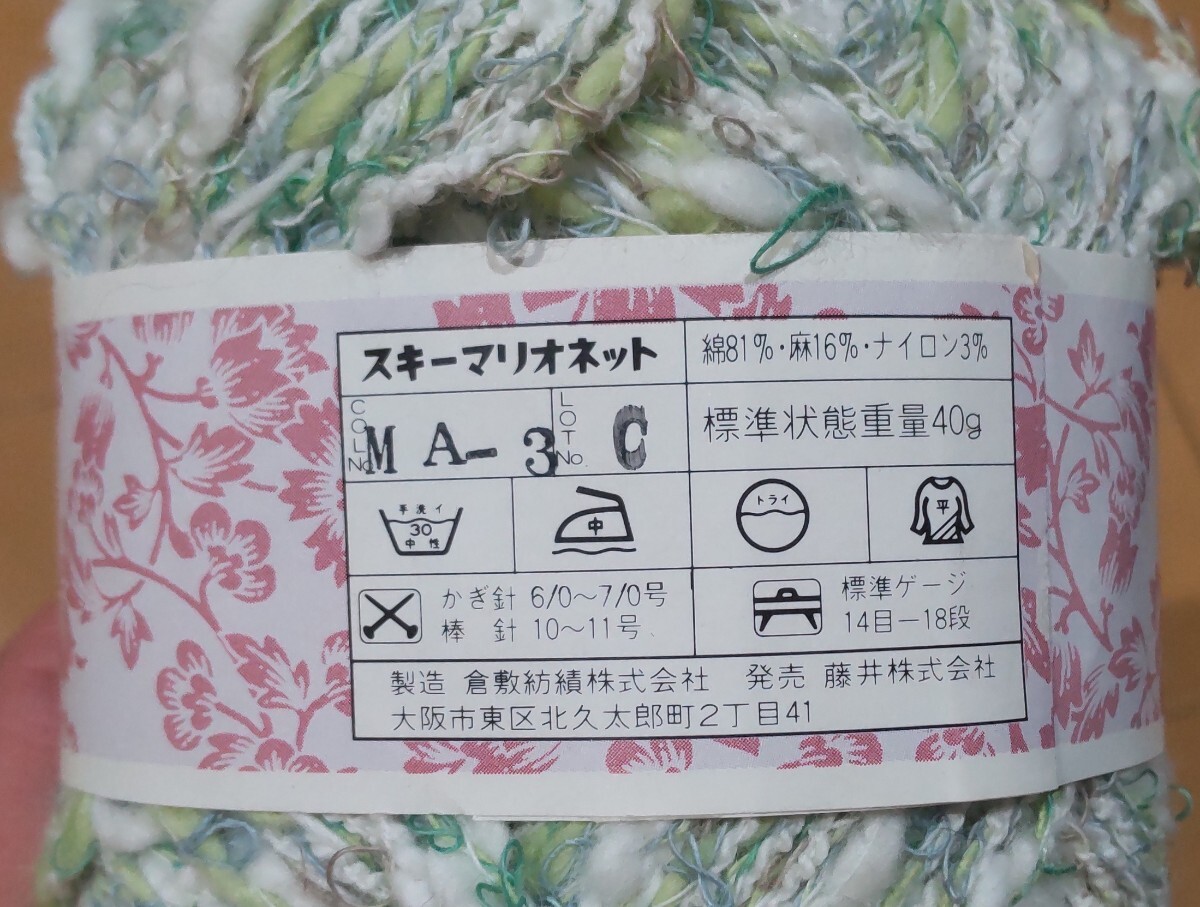 スキーマリオネット
綿81%・麻16%・ナイロン3%
COL No. MA-3
LOT No. C
標準状態重量40g
手洗イ
30
中性
中
ドライ
平
かぎ針 6/0〜7/0号
棒 針 10〜11号
標準ゲージ
14目ー18段
製造 倉敷紡績株式会社 発売 藤井株式会社
大阪市東区北久太郎町2丁目41